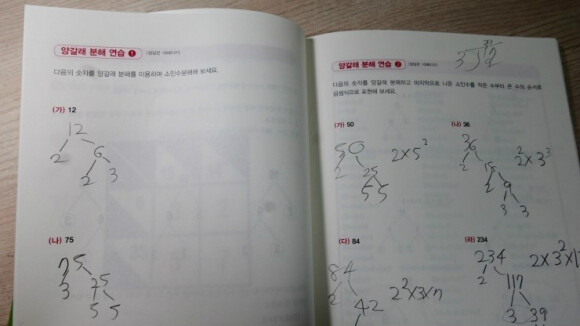 양갈래 분해 연습 1
다음의 숫자를 양갈래 분해를 이용하여 소인수분해해 보세요.
(가) 12
12
2 6
2 3
(나) 75
75
3 25
5 5
3)9
양갈래 분해 연습 2
다음의 숫자를 양갈래 분해하고 마지막으로 나온 소인수를 작은 수부터 큰 수의 순서로
곱셈식으로 표현해 보세요.
(가) 50
50
2 25
5 5
2×5²
(나) 36
36
2
2 9
3 3
2²×3³
(다) 84
84
2 42
2²×3×7
(라) 234
234
2 117
3 39
2×3²×1